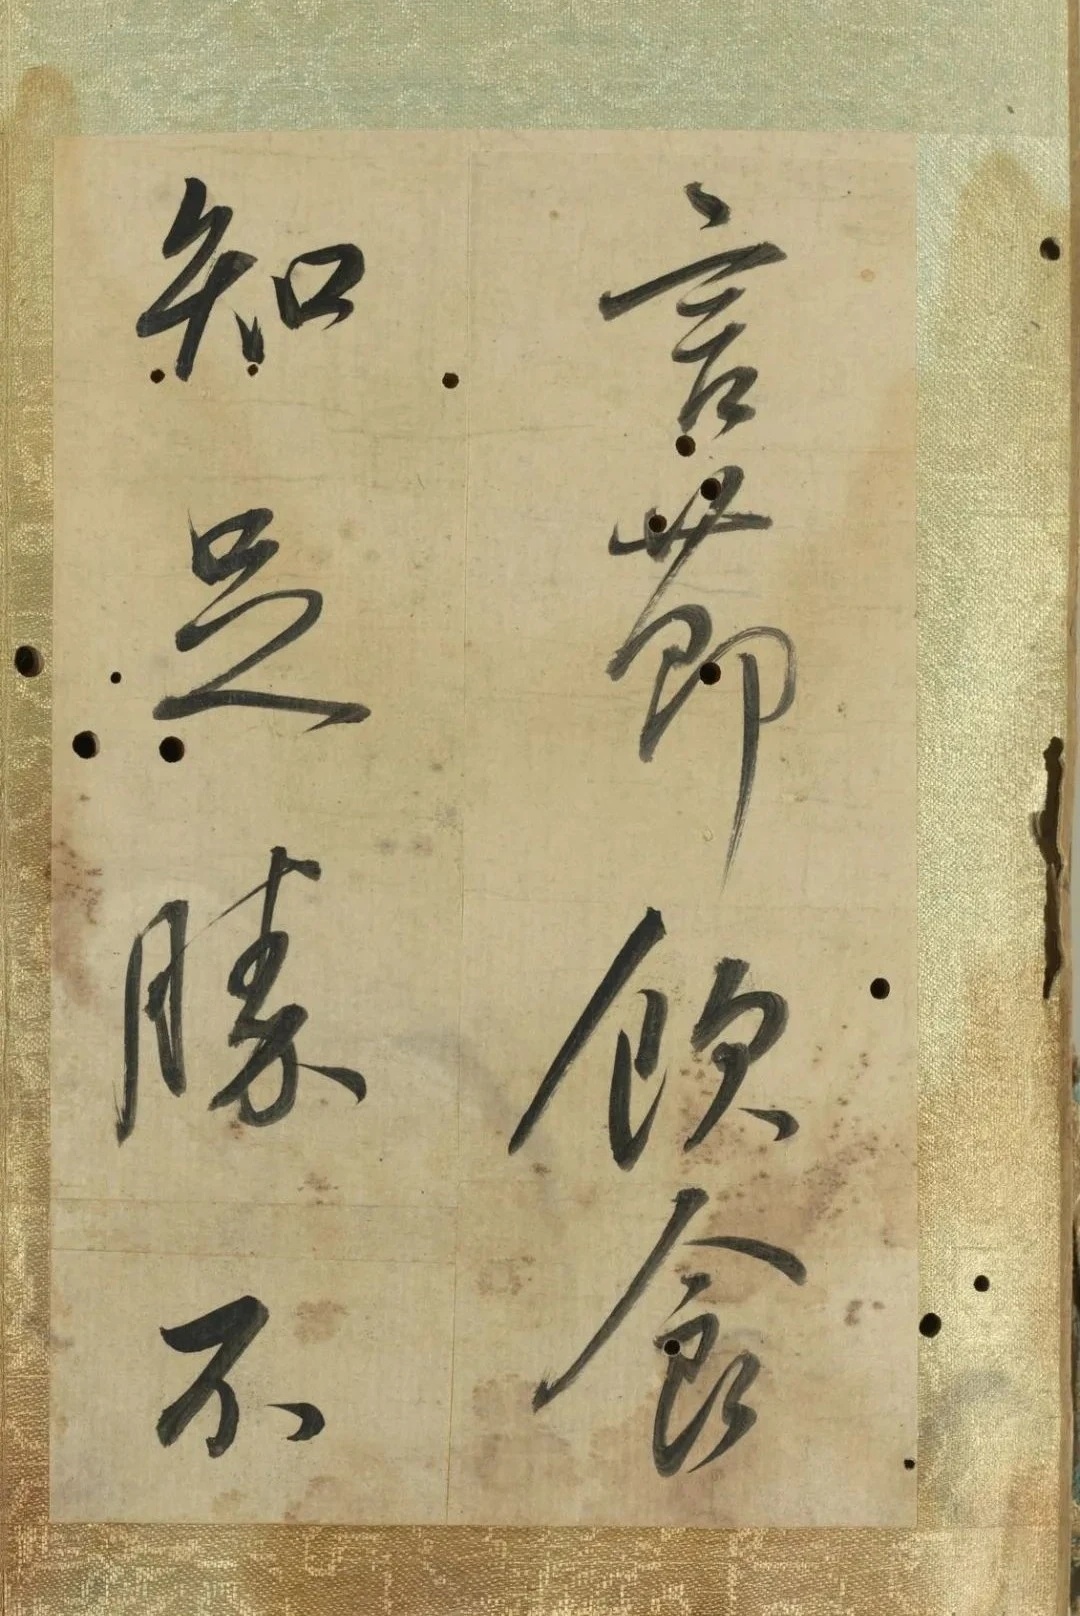 言節飲食
知足勝不